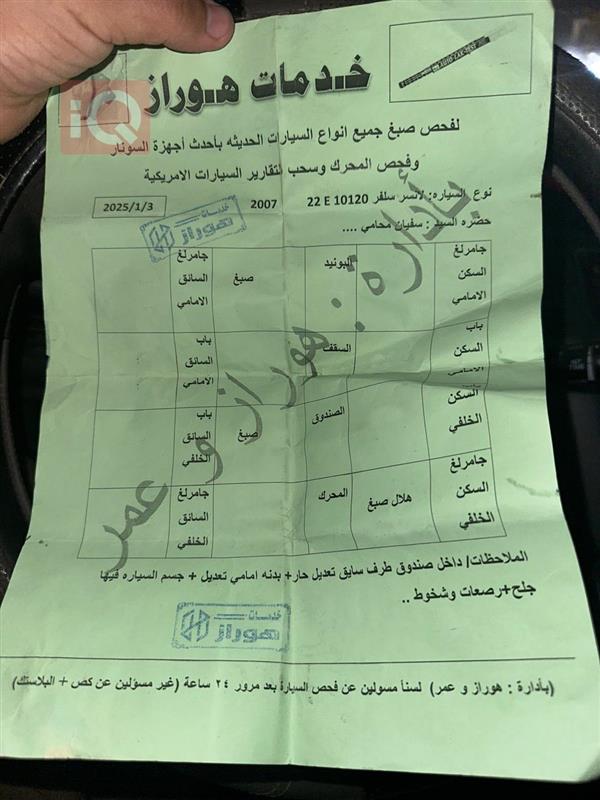 خـدمات هـوراز
لفحص صبغ جميع انواع السيارات الحديثه بأحدث أجهزة السونار
وفحص المحرك وسحب التقارير السيارات الامريكية
نوع السياره: لانسر سلفر 10120 E 22 2007 2025/1/3
حضره السيد : سفيان محامي ....
خدمات
هوراز
جامرلغ السكن الامامي البونيد صبغ جامرلغ السائق الامامي
باب السكن الامامي السقف باب السائق الامامي
باب السكن الخلفي الصندوق صبغ باب السائق الخلفي
جامرلغ السكن الخلفي هلال صبغ المحرك جامرلغ السائق الخلفي
بأدارة: هوراز و عمر
الملاحظات/ داخل صندوق طرف سايق تعديل حار+ بدنه امامي تعديل + جسم السياره فيها
جلح+رصعات وشخوط ..
خدمات
هوراز
(بأدارة : هوراز و عمر) لسنأ مسولين عن فحص السيارة بعد مرور ٢٤ ساعة (غير مسؤلين عن كص + البلاستك)
iQ